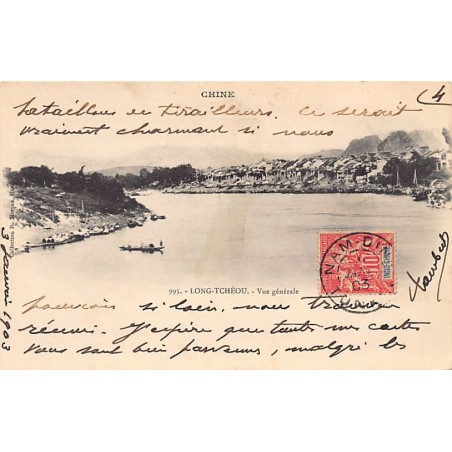 CHINE
4
bataillons de tirailleurs. Ce serait
vraiment charmant si nous
NAM DINH
10
995. - LONG-TCHÉOU. - Vue générale
3 Janvier 1903
pouvions si loin, nous
réunir. J'espère que toutes mes cartes
vous sont bien parvenues, malgré les